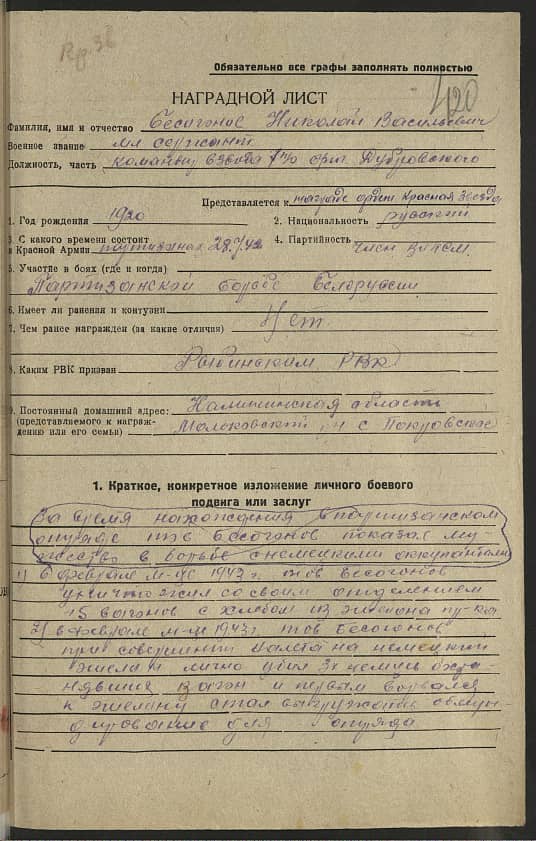 Кр. Зв
Обязательно все графы заполнять полностью
420
НАГРАДНОЙ ЛИСТ
Фамилия, имя и отчество Бесогонов Николай Васильевич
Военное звание мл сержант
Должность, часть командир взвода бриг Дубровского
Представляется к награде орден Красная Звезда
1. Год рождения 1920
2. Национальность русский
3. С какого времени состоит
в Красной Армии партизанах 28.7.42
4. Партийность член ВЛКСМ
5. Участие в боях (где и когда)
Партизанской борьбе Белоруссии
6. Имеет ли ранения и контузии
7. Чем ранее награжден (за какие отличия) Нет
8. Каким РВК призван Рыбинским РВК
9. Постоянный домашний адрес: Калининская область
(представляемого к награж- Молоковский с Покровское
дению или его семьи)
1. Краткое, конкретное изложение личного боевого
подвига или заслуг
За время нахождения в партизанском
отряде тов Бесогонов показал му-
жество в борьбе с немецкими оккупантами
1) В феврале м-це 1943 г. тов Бесогонов
уничтожил со своим отделением
5 вагонов с хлебом из эшелона пр-ка
2) в феврале м-це 1943 г. тов Бесогонов
при совершении налета на немецкий
эшелон лично убил 3х немцев охра-
нявших вагон и первым ворвался
к эшелону стал выгружать обмун-
дирование для отряда